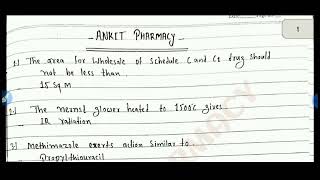 Date
1
- ANKIT PHARMACY -
1) The area for Wholesale of Schedule C and C1 drug should
not be less than.
15 Sq.m
2) The nernst glower heated to 1500°C gives.
IR raliation
3) Methimazole exerts action Similar to.